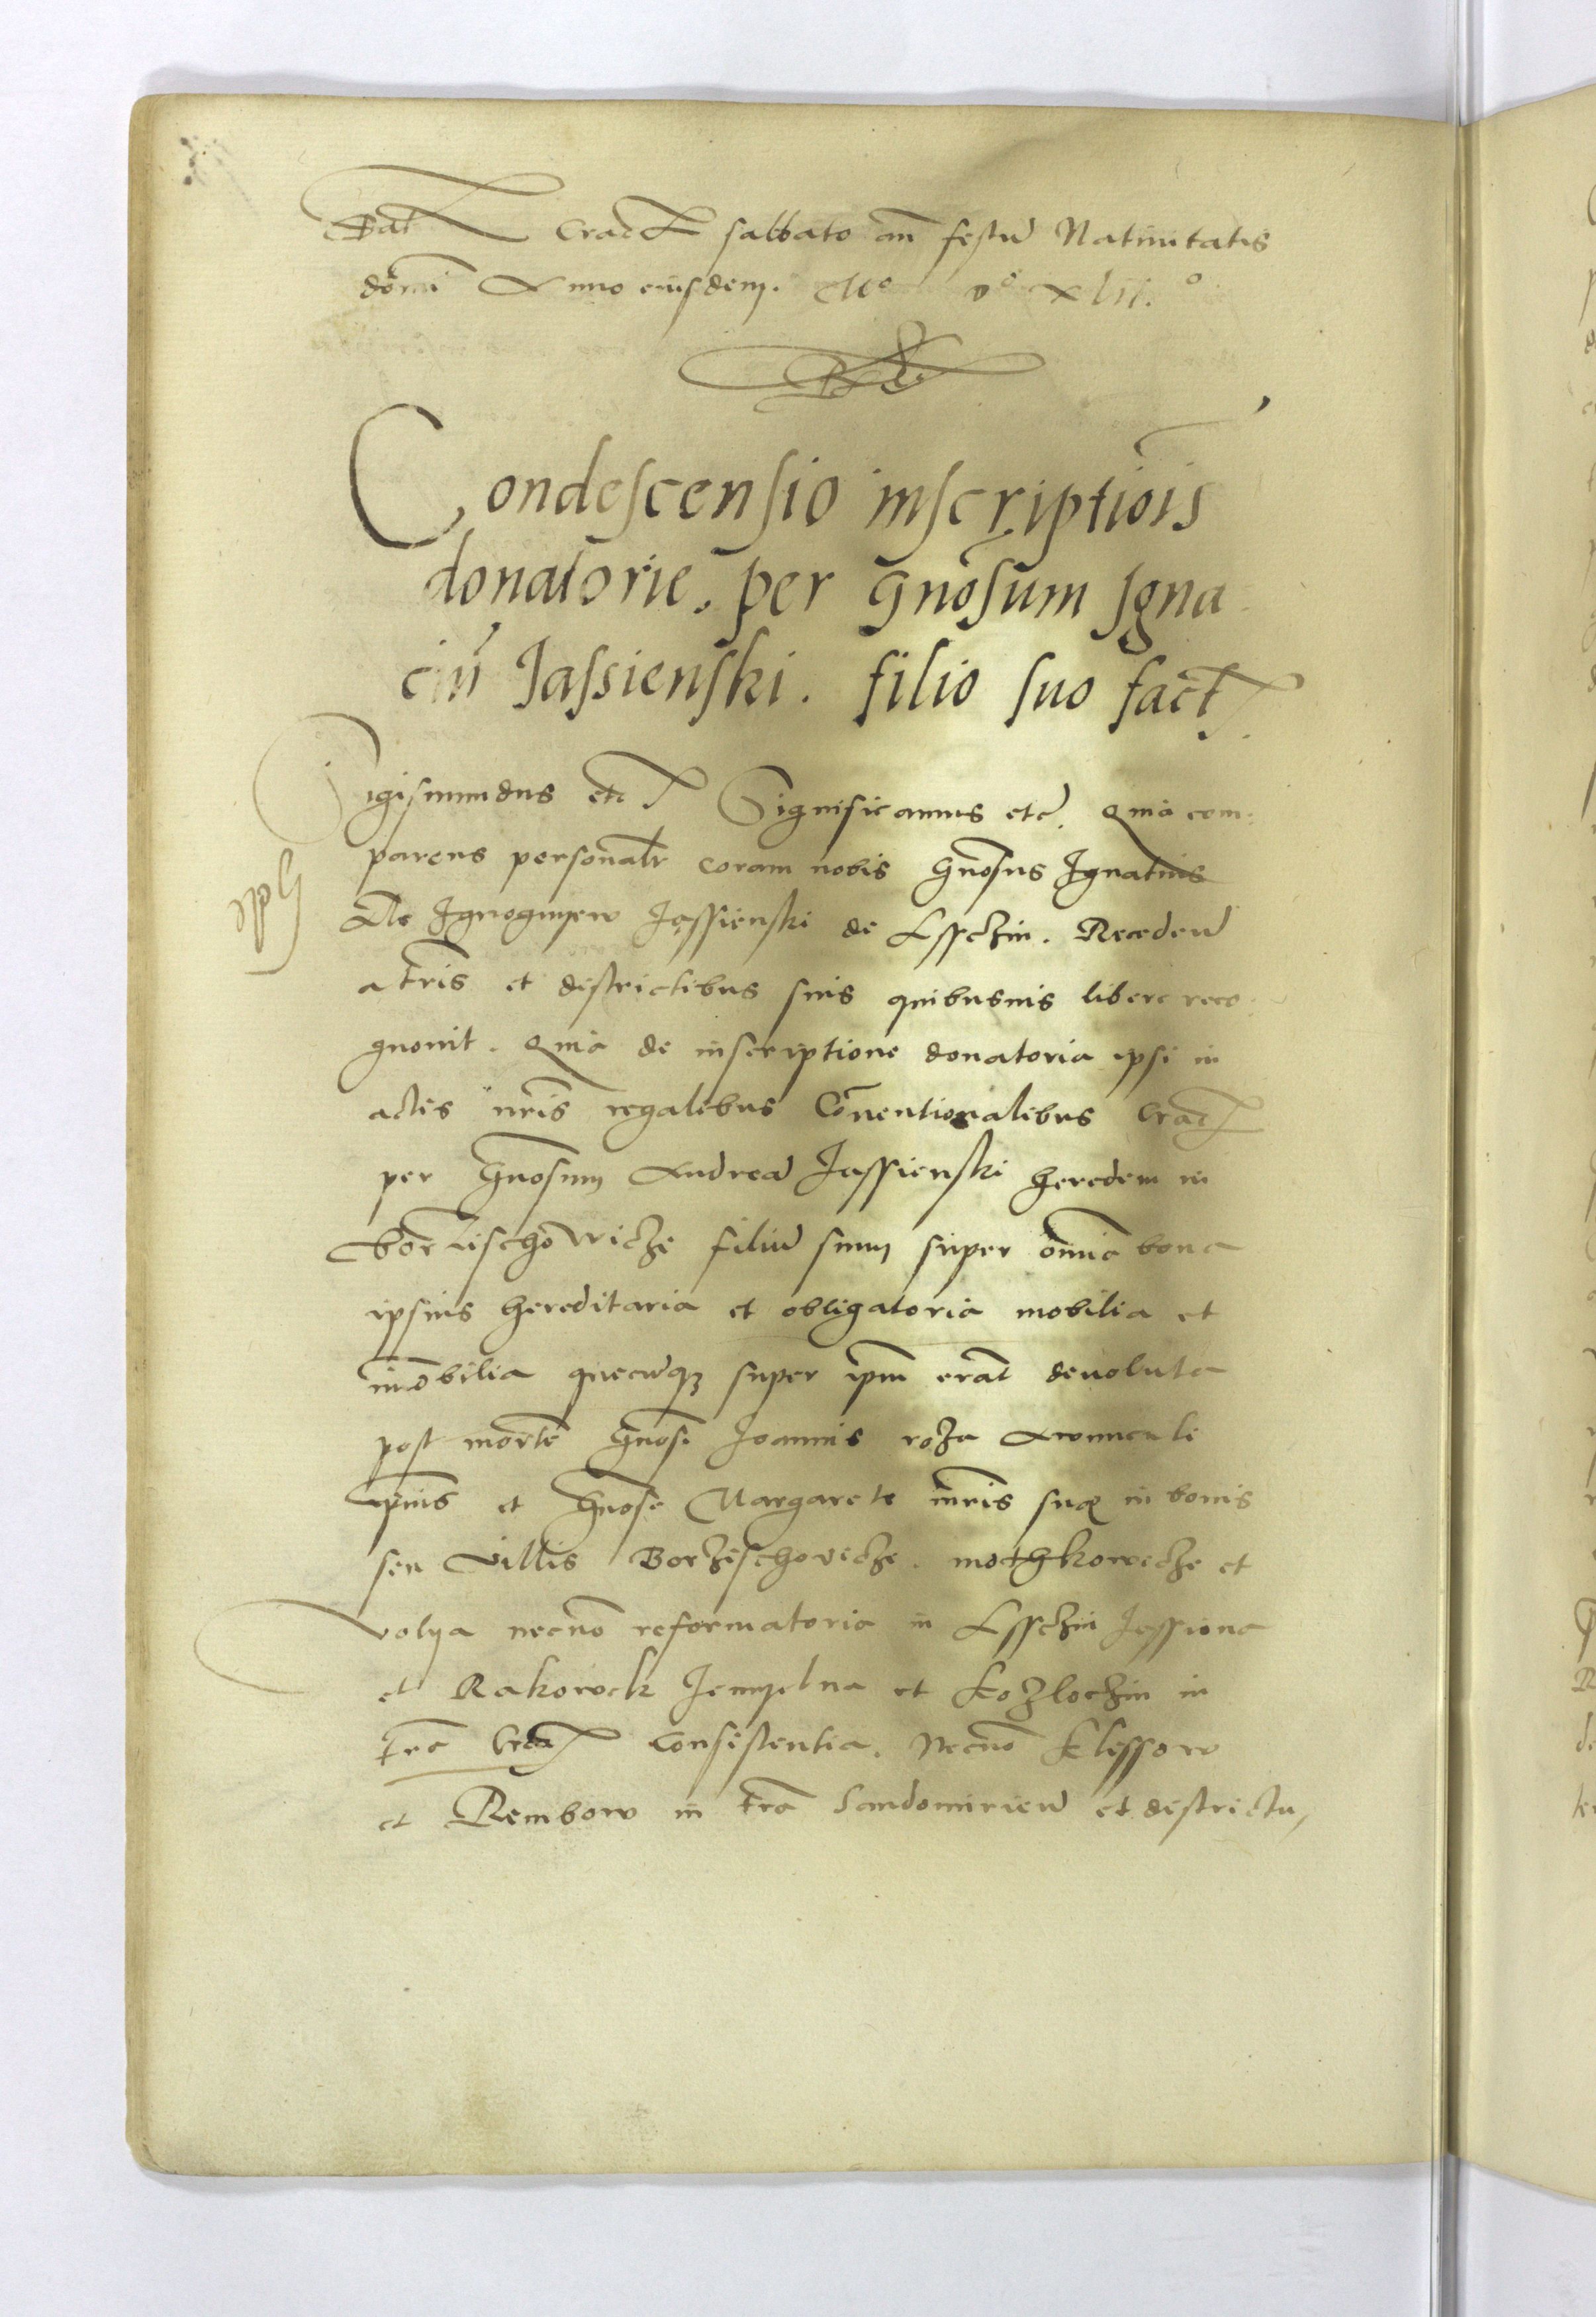 Dat Crac sabbato an festu Natiuitatis
domi Anno eiusdem. Mo vo xlii. o
Condescensio inscriptiois
donatorie. per gnosum Igna
ciu Jassienski. filio suo fact
Sigismundus etc Significamus etc. Quia com:
parens personalr coram nobis Gnosus Ignatius
Jassienski de Lsschzin. Recedend
a tris et districtibus suis quibusuis libere reco:
gnouit. Quia de inscriptione donatoria ipsi in
actis nris regalibus Conuentionalibus Crac
per Gnosum Andrea Jassienski heredem in
filiu suum super omia bona
ipsius hereditaria et obligatoria mobilia et
imobilia quecuqz super ipm erat deuoluta
post morte Gnosi Joannis roza Auunculi
ipius et Gnose Margarete mris sue in bonis
seu villis Borzischovicze. mothkowicze et
volya necno reformatoria in Lsschzin Jassiona
et Rakowek Jemyelna et kozloczin in
tra Crac consistentia. Necno klissow
et Rembow in tra Sandomirien et districtu,